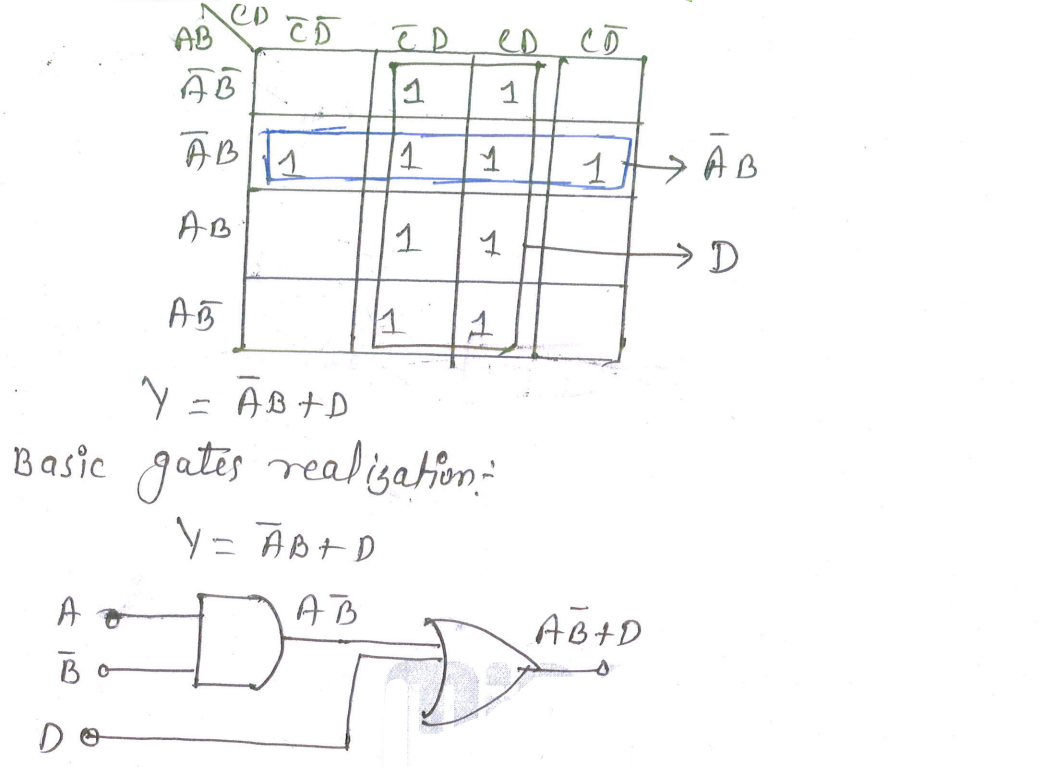 CD
AB C̅D̅ C̅D CD CD̅
A̅B̅ 1 1
A̅B 1 1 1 1 → A̅B
AB 1 1 → D
AB̅ 1 1
Y = A̅B+D
Basic gates realization:-
Y = A̅B+D
A AB̅ AB̅+D
B̅
D